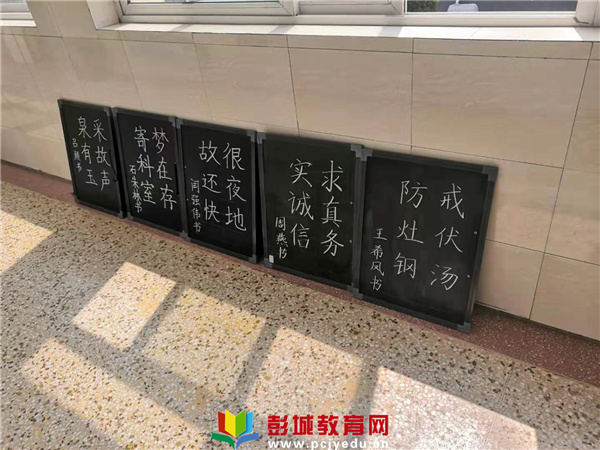 采故声
泉有玉
梦在存
寄科室
很夜地
故还快
闫强伟书
求真务
实诚信
周燕书
戒伏汤
防灶钢
王希凤书
彭城教育网
www.pcjyedu.cn